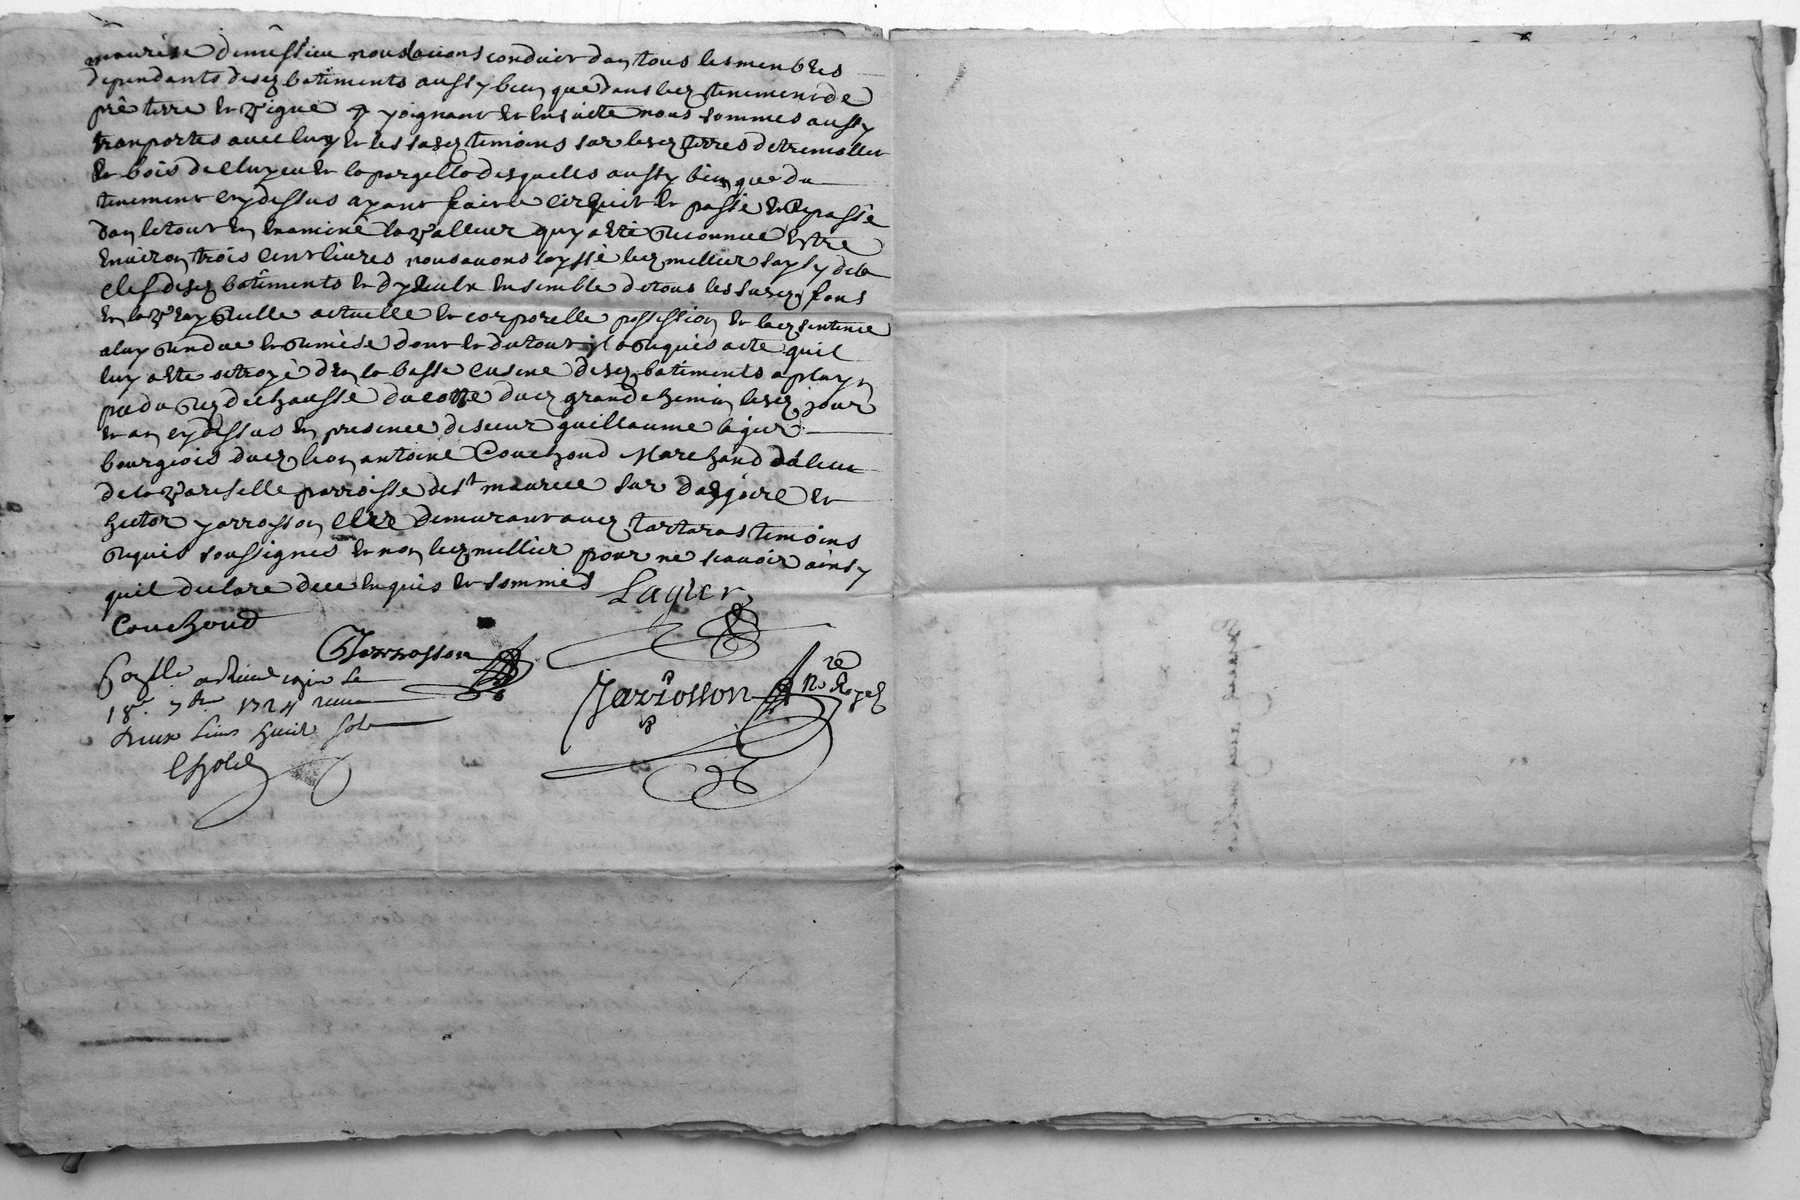 maurise demessieu nous avons conduit dan tous les menbres
dependants desez batiments aussy bien que dans lez tenement de
pré terre et vigne y joignant et ensuitte nous sommes aussy
tranportes avec luy et les susez temoins sur lesez terres de tremollet
et bois de et la pargello desquelles aussy bien que du
tenement cydessus ayant fait le circuit et passé et repassé
dan letout et examiné la valleur quy a eté reconnue estre
environ trois cent livres nous avons laysse lez mellier saysy de la
clef desez batiments et d'yceux ensemble de tous les susez fons
en la vray reelle actuelle et corporelle possession et laez sentence
a luy rendue et remise dont et du tout il a requis acte quil
luy a eté octroyé dan la basse cusine desez batiments a plain
pied du rez dechaussé du cotté duez grand chemin lesez jour
et an cydessus en presence de sieur guillaume lagier
bourgeois duez lieu antoine Couchoud Marchand
de la varaselle parroisse de st maurice sur dargoire et
hector jarrosson clerc demurant auez tartaras temoins
requis soussignes et non lez mellier pour ne scavoir ainsy
quil declare de ce enquis et sommés
Lagier
Couchoud
Jarrosson
Jarrosson Nre Royal
Conlle a Rivedegier le
18e 7bre 1724 receu
huit sols